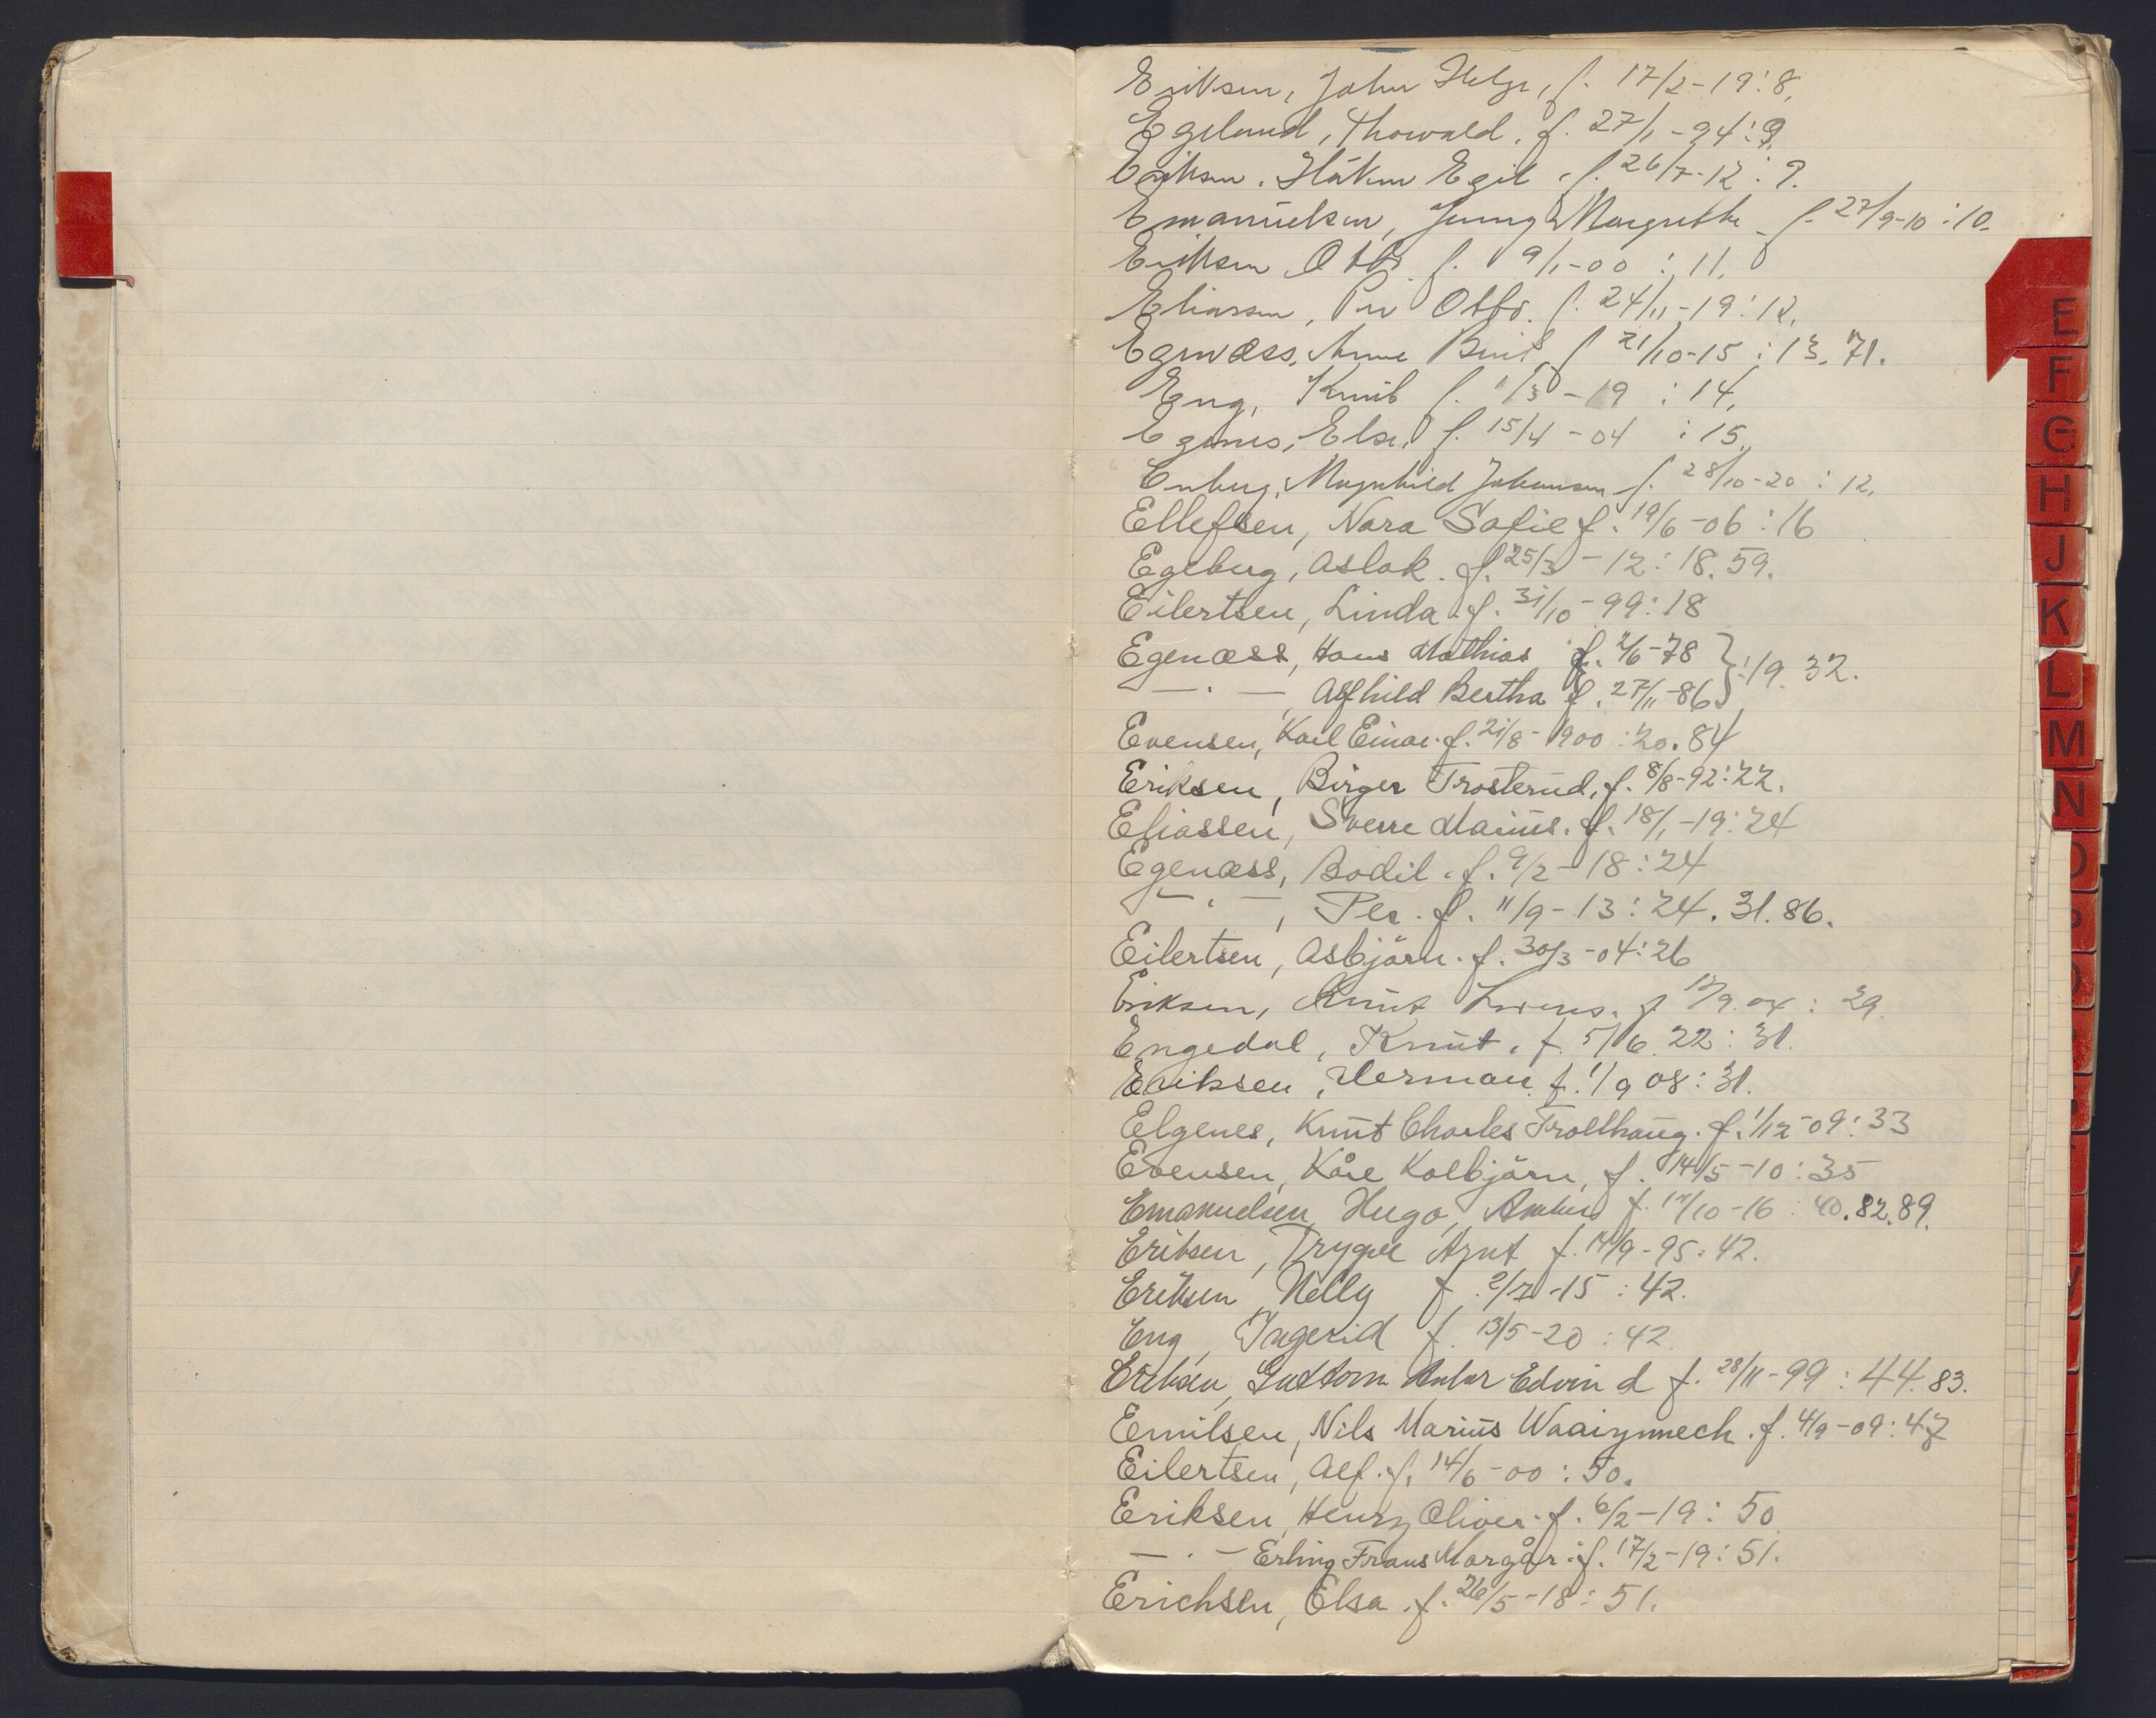 Eriksen, John Helge, f. 17/2-19: 8.
Egeland, Thorvald. f. 27/1-94: 9.
Eriksen. Håkon Egil. f. 26/7-12: 9.
Emanuelsen, Jenny Margrethe f. 27/9-10: 10.
Eriksen Otto f. 9/1-00: 11.
Eliassen, Per Otto. f. 24/11-19: 12.
Egenæss, Anne Berit f. 21/10-15: 13. 71.
Eng, Knut f. 1/3-19: 14.
Egenes, Else, f. 15/4-04: 15.
Enberg, Magnhild Johansen f. 28/10-20: 12.
Ellefsen, Nara Sofie f. 19/6-06: 16
Egeberg, Aslak. f. 25/3-12: 18. 59.
Eilertsen, Linda. f. 31/10-99: 18
Egenæss, Hans Mathias f. 2/6-78 } : 19. 32.
— . — , Alfhild Bertha f. 27/11-86
Evensen, Karl Einar. f. 21/8-1900: 20. 84
Eriksen, Birger Trosterud, f. 8/8-92: 22.
Eliassen, Sverre Marius. f. 18/1-19: 24
Egenæss, Bodil. f. 9/2-18: 24
— . — , Per. f. 11/9-13: 24. 31. 86.
Eilertsen, Asbjörn. f. 30/3-04: 26
Eriksen, Knut f. /9.04: 29.
Engedal, Knut. f. 5/6.22: 31.
Eriksen, Herman. f. 1/9 08: 31.
Elgenes, Knut Charles Trollhaug. f. 1/12-09: 33
Evensen, Kåre Kolbjörn, f. 14/5-10: 35
Emanuelsen, Hugo, f. 12/10-16: 40. 82. 89.
Eriksen, Trygve Arnt f. 14/9-95: 42.
Eriksen, Nelly f. 2/7-15: 42.
Eng, Ingerid f. 13/5-20: 42.
Eriksen, Guttorm Anker Edvind f. 28/11-99: 44. 83.
Emilsen, Nils Marius Waaizmnech. f. 4/9-09: 47
Eilertsen, Alf. f. 14/6-00: 50.
Eriksen, Henry Oliver. f. 6/2-19: 50
— . — Erling Frans Morgår. f. 17/2-19: 51.
Erichsen, Elsa. f. 26/5-18: 51.
E
F
G
H
J
K
L
M
N